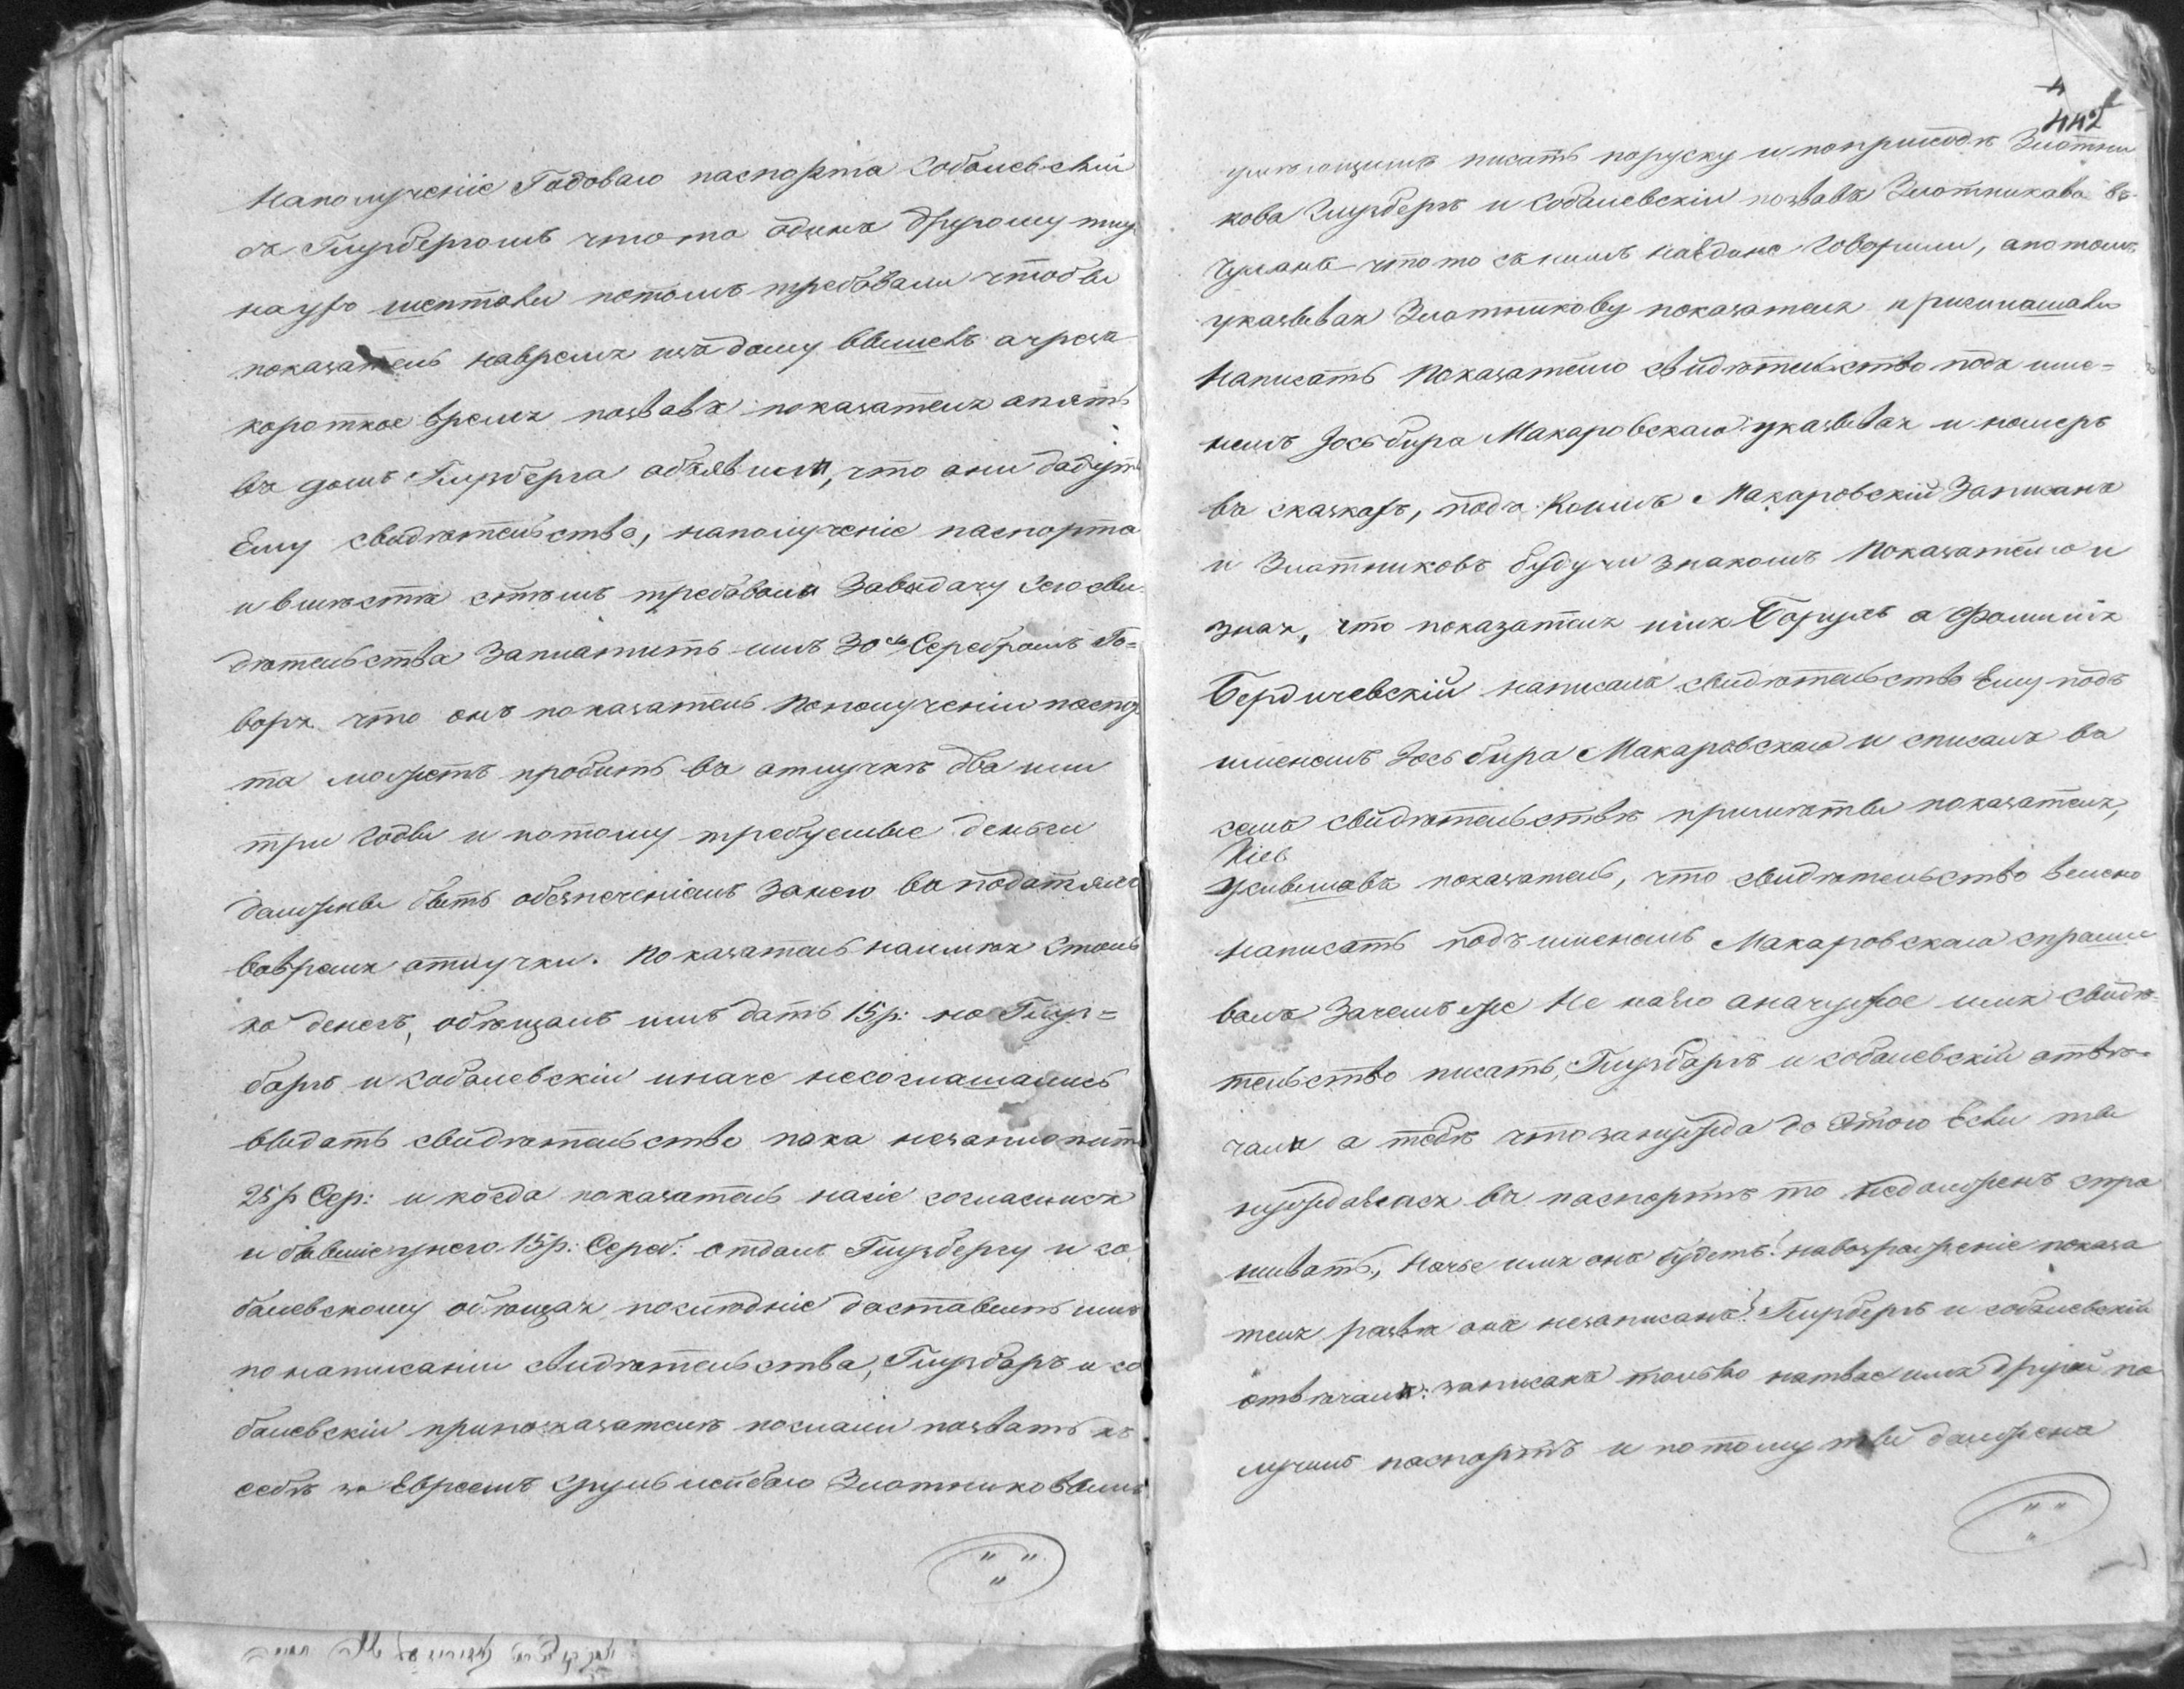 наполученіе Годоваго паспорта Соболевскій
съ Гинзбергомъ что то одинъ другому
на ухо шептали потомъ требовали чтобы
показатель навремя изъ дому вышелъ а чрезъ
короткое время позвавъ показателя опять
въ домъ Гинзберга объявили, что они дадутъ
Ему свидѣтельство, наполученіе паспорта
и вмѣстѣ стѣмъ требовали завыдачу сего сви
дѣтельства заплатить имъ 30 Серебромъ Го=
воря что онъ показатель пополученіи паспор
та можетъ пробыть въ отлучкѣ два или
три годы и потому требуемые деньги
должны быть обезпеченіемъ занего въ податяхъ
вовремя отлучки. Показатель наимѣя столь
ко денегъ, обѣщалъ имъ дать 15 р: но Гинз=
бергъ и Соболевскій иначе несоглашались
выдать свидѣтельство пока незаплотитъ
25 р Сер: и когда показатель насіе согласился
и бывшіе унего 15 р: Сереб: отдалъ Гинзбергу и Со
болевскому обѣщая послѣдніе доставить имъ
по написаніи свидѣтельства, Гинзбергъ и Со
болевскій припоказателѣ послали позвать къ
себѣ за Евреемъ Срулъ Лейбою Злотниковымъ
442
умѣющимъ писать поруску и поприходѣ Злотни
кова Гинзбергъ и Соболевскій позвавъ Злотникова въ
Чуланъ что то съ нимъ наединѣ говорили, апотомъ
указывая Злотникову показателя приглашали
написать показателю свидѣтельство подъ име=
немъ Іось Бира Макаровскаго указывая и номеръ
въ сказкахъ, подъ Коимъ Макаровскій Записанъ
и Злотниковъ будучи знакомъ показателю и
зная, что показателя имя Борухъ а фамилія
Бердичевскій написалъ свидѣтельство Ему подъ
именемъ Іось Бира Макаровскаго и списалъ въ
семъ свидѣтельствѣ примѣты показателя,
услышавъ показатель, что свидѣтельство велено
написать подъ именемъ Макаровскаго спраши
валъ зачемъ же не на его ачужое имя свидѣ=
тельство писать, Гинзбергъ и Соболевскій отвѣ=
чали а тебѣ что занужда до Этого Если ты
нуждаешся въ паспортѣ то недолженъ спра
шивать, на чье имя онъ будетъ! навозраженіе показа
теля развѣ онъ незаписанъ? Гинзбергъ и Соболевскій
отвѣчали: записанъ только натвое имя другой по
лучилъ паспортъ и потому ты долженъ